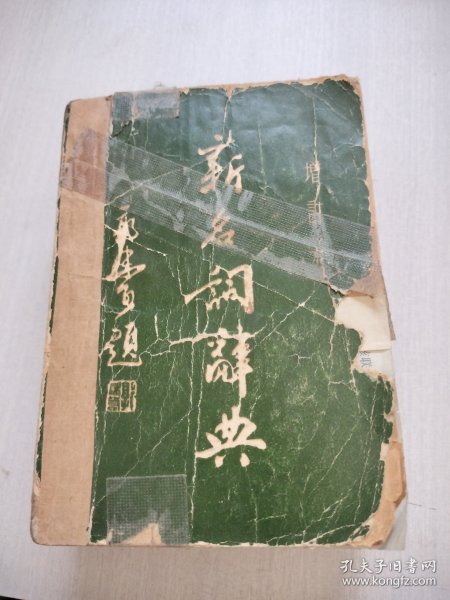 增訂
新名詞辭典
題
孔夫子旧书网
www.kongfz.com